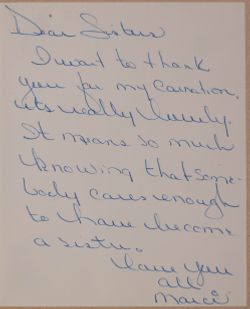 Dear Sisters
I want to thank
you for my carnation.
its really lovely.
It means so much
knowing that some-
body cares enough
to have become
a sister.
Love you
all